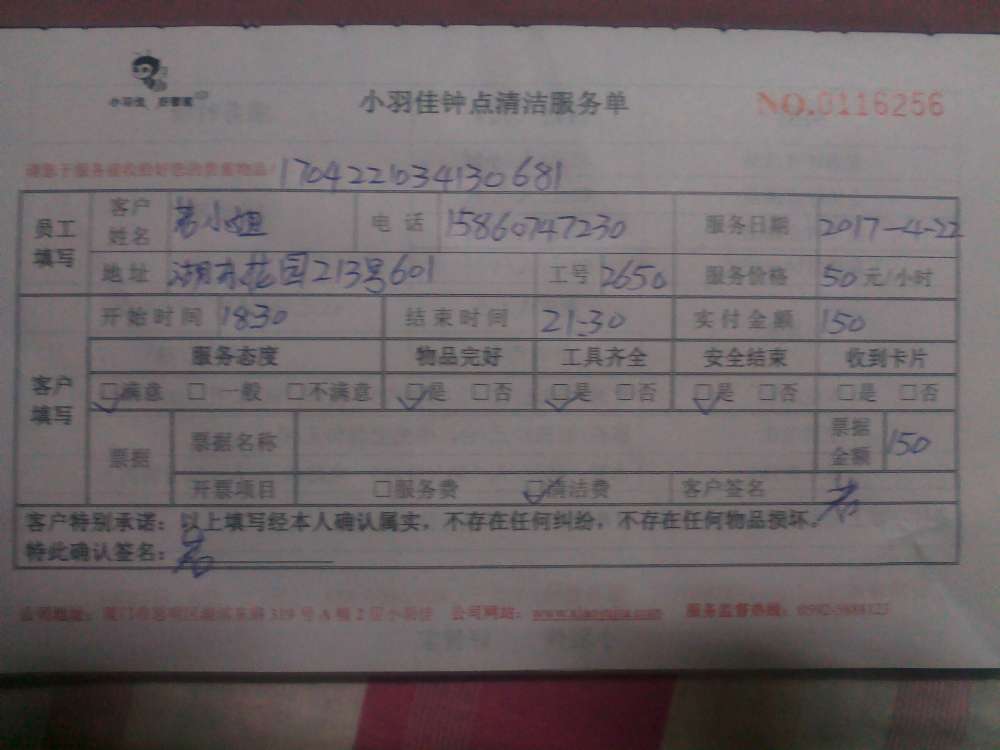 小羽佳 好管家
小羽佳钟点清洁服务单
NO.0116256
请您于服务前收拾好您的贵重物品! 170422103413 0681
员工填写 客户姓名 小姐 电话 15860747230 服务日期 2017-4-22
地址 湖 花园213号601 工号 2650 服务价格 50 元/小时
客户填写 开始时间 18:30 结束时间 21:30 实付金额 150
服务态度 物品完好 工具齐全 安全结束 收到卡片
□满意 □一般 □不满意 □是 □否 □是 □否 □是 □否 □是 □否
票据 票据名称 票据金额 150
开票项目 □服务费 □清洁费 客户签名
客户特别承诺：以上填写经本人确认属实，不存在任何纠纷，不存在任何物品损坏。
特此确认签名：
公司地址：厦门市思明区 319号A幢2层小羽佳 公司网站：www.xiaoyujia.com 服务监督热线：0592-